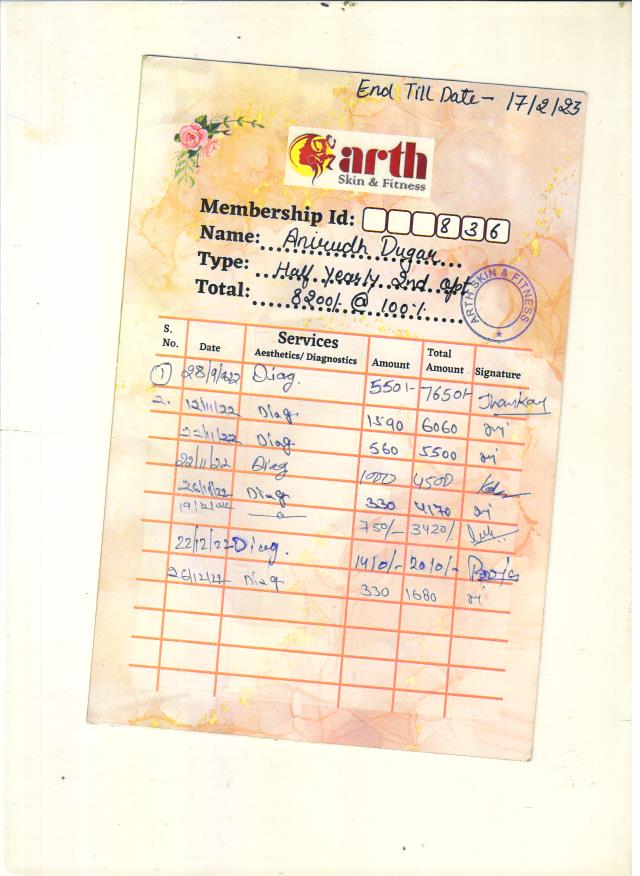 End Till Date - 17/2/23
arth
Skin & Fitness
Membership Id: 836
Name: Anirudh Dugar
Type: Half Yearly 2nd opt
Total: 8200/- @ 100%
ARTH SKIN & FITNESS
S. No. Date Services Aesthetics/ Diagnostics Amount Total Amount Signature
1 28/9/22 Diag. 550/- 7650/-
2. 12/11/22 Diag 1590 6060
22/11/22 Diag 560 5500
22/11/22 Diag 1000 4500
Diag 330 4170
19/12/22 750/- 3420/-
22/12/22 Diag. 1410/- 2010/-
26/12/22 Diag 330 1680